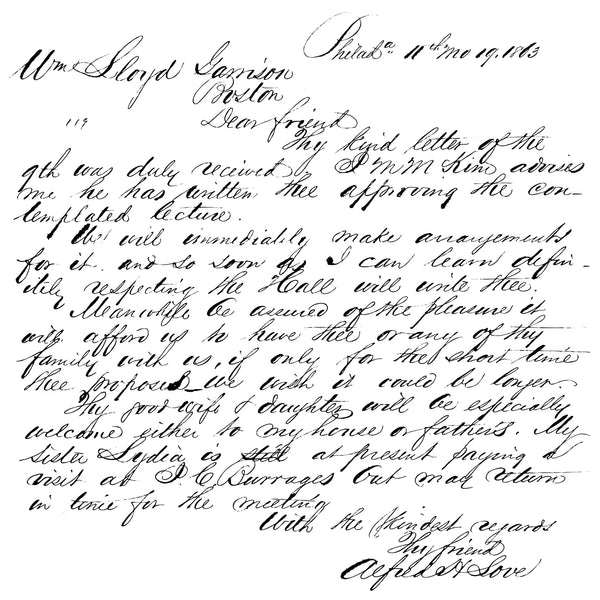 Philada 11th mo 19. 1863
Wm Lloyd Garrison
Boston
119
Dear friend
Thy kind letter of the
9th was duly received. J M M Kim advises
me he has written thee approving the con-
templated lecture.
We will immediately make arrangements
for it and so soon as I can learn defin-
itely respecting the Hall will write thee.
Meanwhile be assured of the pleasure it
will afford us to have thee or any of thy
family with us, if only for the short time
thee proposes_we wish it could be longer.
Thy good wife & daughter will be especially
welcome either to my house or father's. My
sister Lydia is still at present paying a
visit at J. C. Burrages but may return
in time for the meeting
With the kindest regards
Thy friend
Alfred H Love